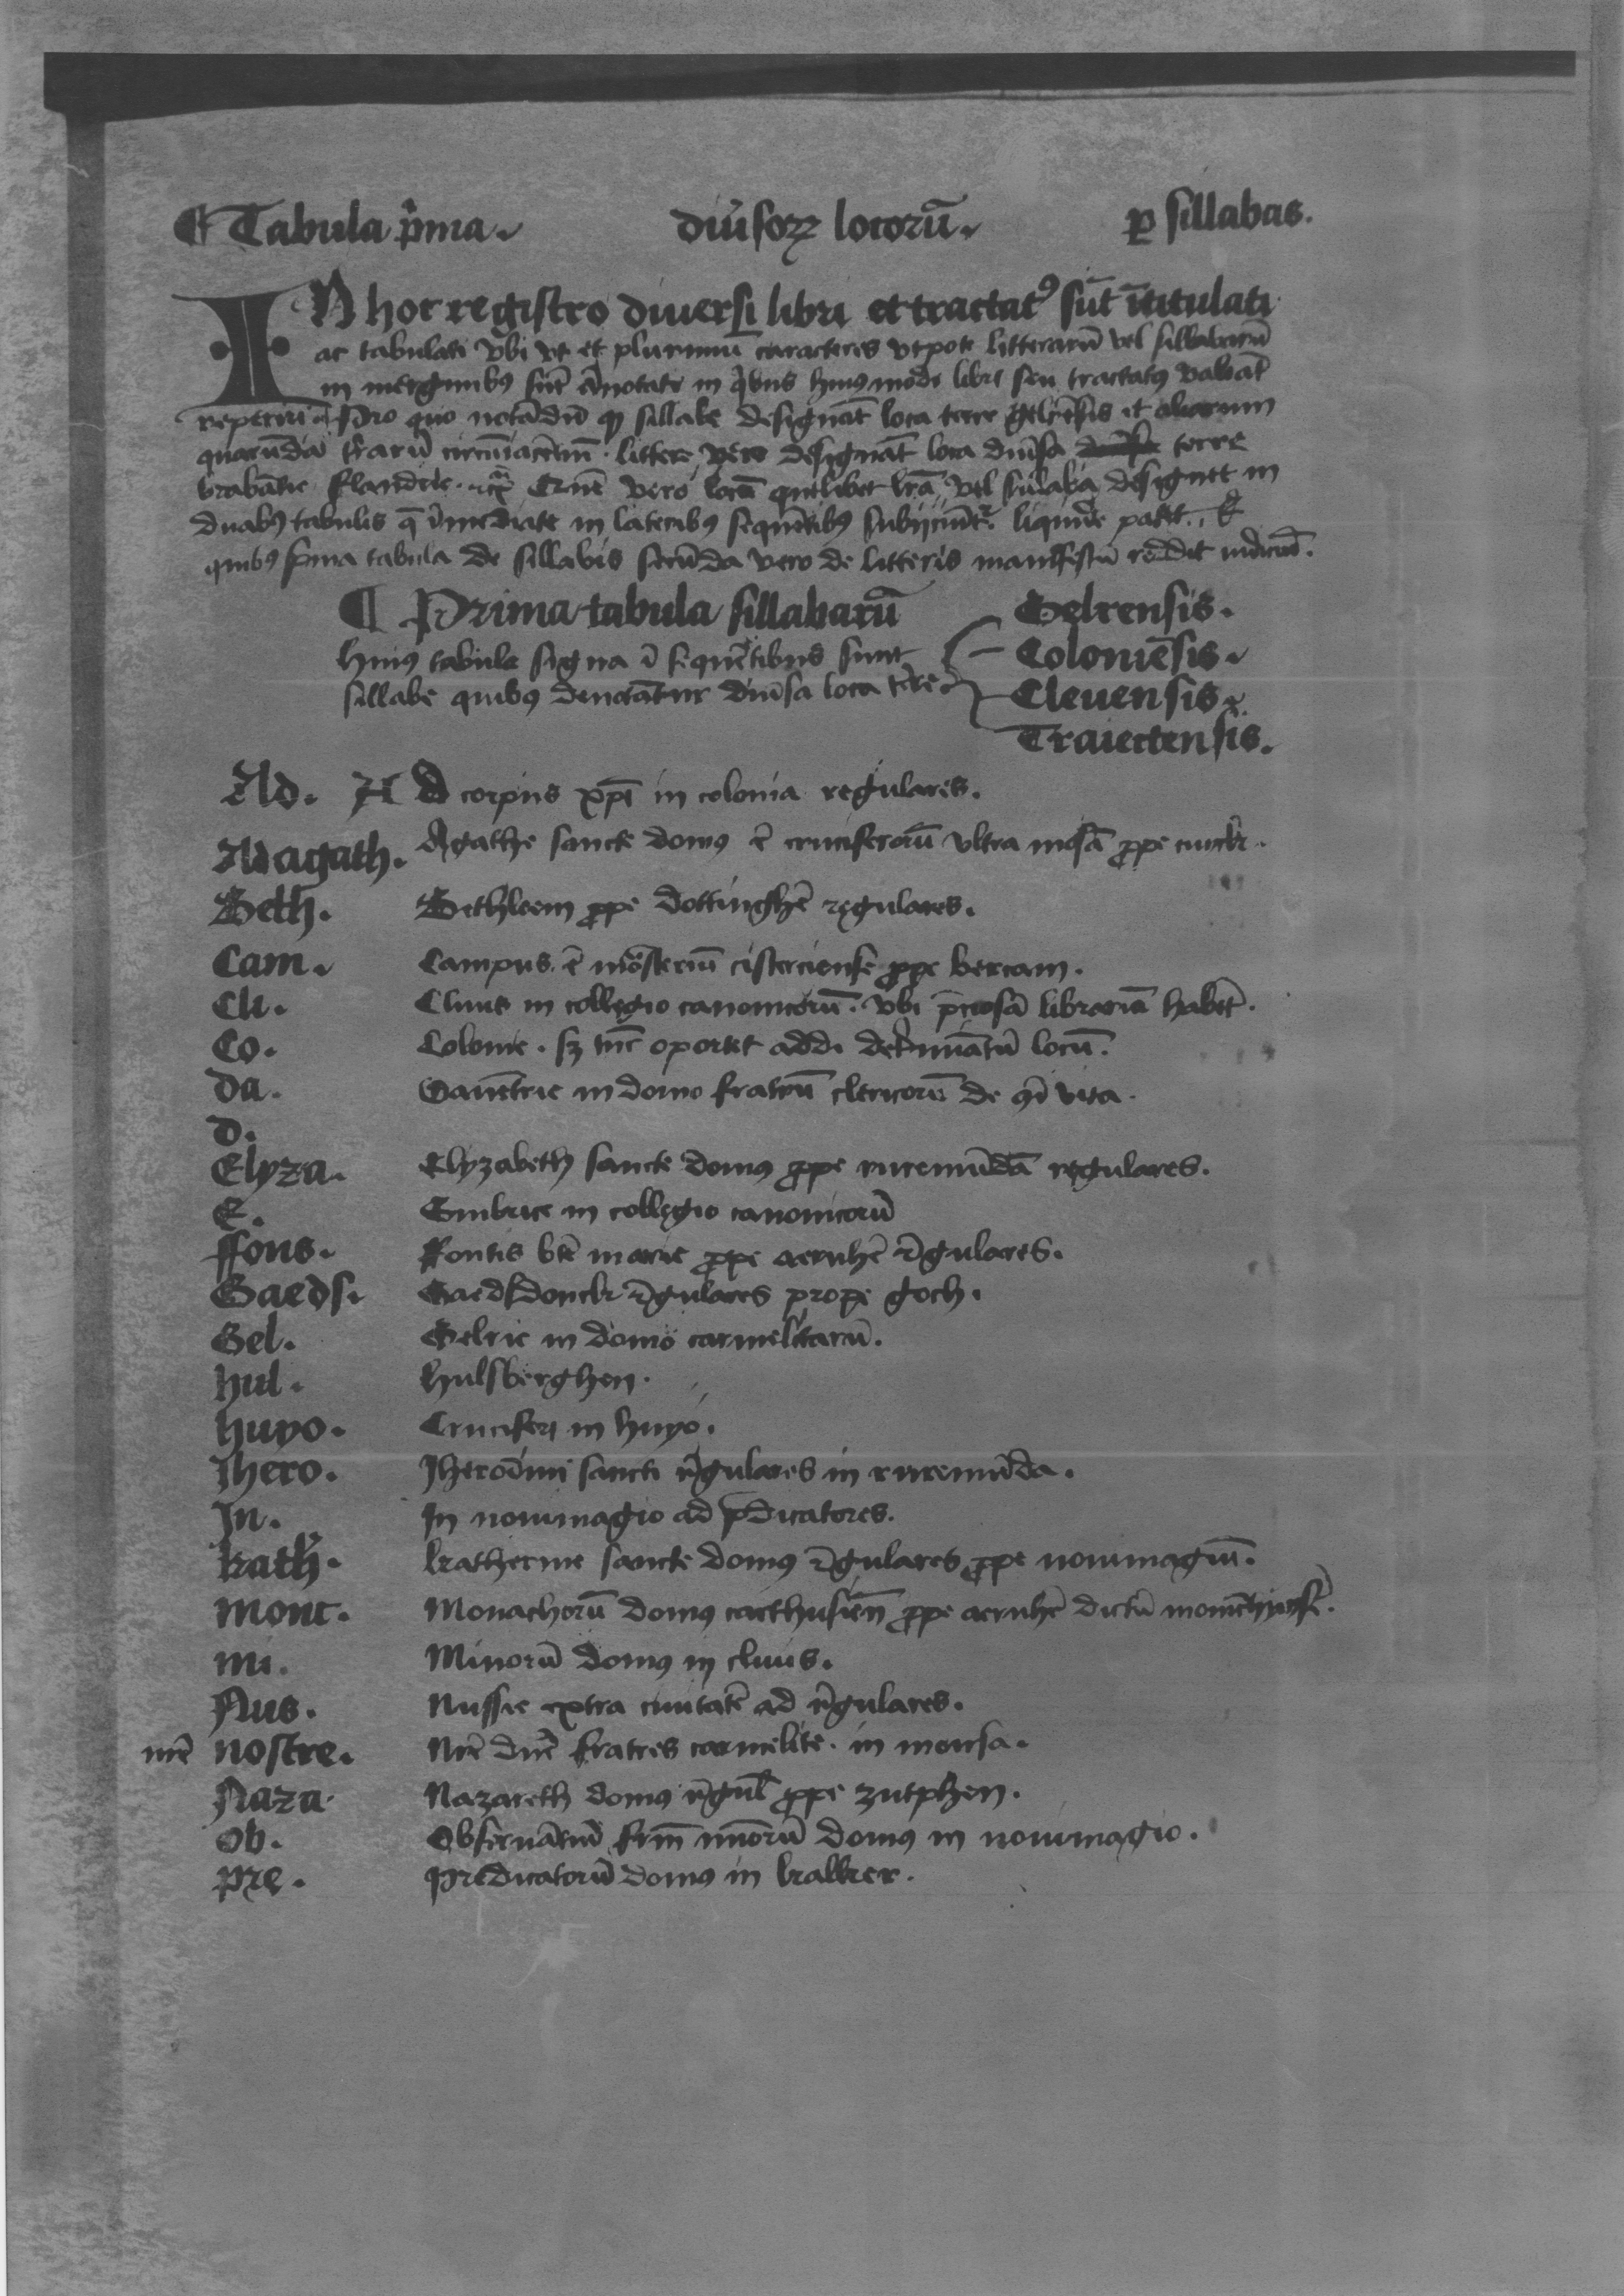 ¶ Tabula p̄ma. diūsoꝝ locorū. ꝑ sillabas.
IN hoc registro diuersi libri et tractatꝰ sūt ītitulati
ac tabulati vbi vt et plurimū caracteres vtpote litterarū vel sillabarū
in marginibꝰ sūt ānotate in q̄bus huiusmodi libri seu tractatꝰ valeāt
reperiri ¶ Pro quo notādū ꝙ sillabe designāt loca terre gelrēsis et aliarum
quarūdā t̄rarū circūiacētiū. littere vero designāt loca diūsa terre
brabātie flandrie. Quē vero locū quelibet lr̄a vel sillaba designet in
duabꝰ tabulis q̄ īmediate in lateribꝰ sequētibꝰ subijciūtʳ. liquide patet.
quibꝰ p̄ma tabula de sillabis secūda vero de litteris manifestū reddit iudiciū.
¶ Prima tabula sillabarū
huiꝰ tabule signa ī sequētibus sunt
sillabe quibꝰ denotātur diūsa loca t̄re
Gelrensis.
Coloniēsis.
Cleuensis.
Traiectensis.
Ad. Ad corpus xp̄i in colonia regulares.
Ad agath. Agathe sancte domꝰ ē cruciferorū vltra mosā ꝓpe cuickr.
Beth. Bethleem ꝓpe dottinghē regulares.
Cam. Campus ē mōsteriū cisterciense ꝓpe bercam.
Cli. Cliuis in collegio canonicorū. vbi p̄ciosā librariā habēt.
Co. Colonie. sꝫ tūc oportet addi det̄minātū locū.
da. Dauētrie in domo fratrū clericorū de 9ī vita.
D.
Elyza. Elyzabeth sancte domꝰ ꝓpe ruremūdā regulares.
E. Embrice in collegio canonicorū
ffons. Fontis btē marie ꝓpe aernhē r̄gulares.
Gaeds. Gaedsdonckr r̄gulares prope goch.
Gel. Gelrie in domo carmelitarū.
hul. hulsberghen.
huyo. Cruciferi in huyo.
Jhero. Jheronimi sancti r̄gulares in ruremūda.
Jn. Jn nouimagio ad p̄dicatores.
kath̄. katherine sancte domꝰ r̄gulares ꝓpe nouimagiū.
Monc. Monachorū domꝰ carthusiēn ꝓpe aernhē dictū
Mi. Minorū domꝰ in cliuis.
Nus. Nussie extra ciuitatē ad r̄gulares.
nrē nostre. Nrē dnē fratres carmelite. in moersa.
Naza. Nazareth domꝰ r̄gul̄ ꝓpe zutphen.
Ob. Obseruātiū frm̄ mīorū domꝰ in nouimagio.
pre. predicatorū domꝰ in kalker.